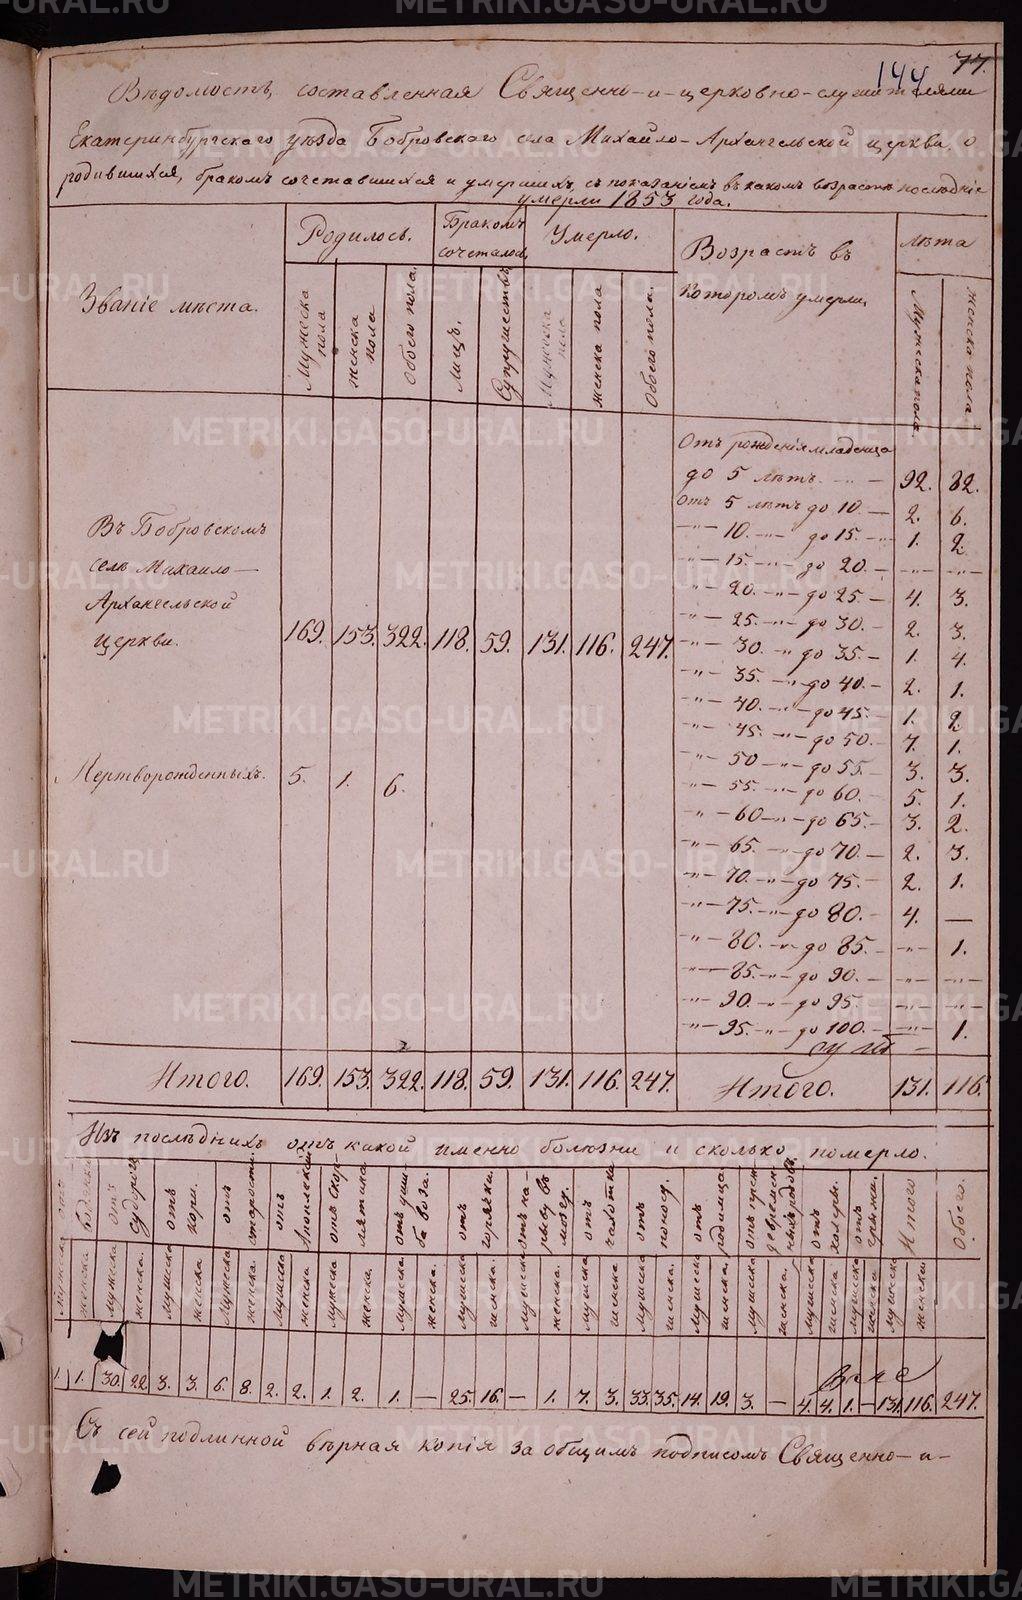 144 77.
Вѣдомость, составленная Священно-и-церковно-служителями
Екатеринбургскаго уѣзда Бобровскаго села Михайло-Архангельской церкви, о
родившихся, бракомъ сочетавшихся и умершихъ, съ показаніемъ въ какомъ возрастѣ послѣдніе
умерли 1853 года.
Званіе мѣста.
Родилось.
Бракомъ сочеталось
Умерло.
Возрастъ въ которомъ умерли
лѣта
Мужеска пола
женска пола
обоего пола.
лицъ.
Супружествъ
Мужеска пола
женска пола
Обоего пола.
Мужеска пола
женска пола.
Отъ рожденія младенца
до 5 лѣтъ. 92. 82.
отъ 5 лѣтъ до 10. 2. 6.
10. до 15. 1. 2.
15. до 20. — —
20. до 25. 4. 3.
25. до 30. 2. 3.
30. до 35. 1. 4.
35. до 40. 2. 1.
40. до 45. 1. 2.
45. до 50. 7. 1.
50 до 55. 3. 3.
55. до 60. 5. 1.
60 до 65. 3. 2.
65. до 70. 2. 3.
70. до 75. 2. 1.
75. до 80. 4. —
80. до 85. — 1.
85. до 90. — —
90. до 95. — —
95. до 100. — 1.
Въ Бобровскомъ
селѣ Михаило—
Архангельской
церкви. 169. 153. 322. 118. 59. 131. 116. 247.
Мертворожденныхъ. 5. 1. 6.
Итого. 169. 153. 322. 118. 59. 131. 116. 247. Итого. 131. 116.
Изъ послѣднихъ отъ какой именно болѣзни и сколько померло.
отъ водянки
отъ судорог
отъ кори.
отъ старости.
отъ Апоплексіи
отъ скорлятика
отъ ушиба воза.
отъ горячки.
отъ нарыву въ мозгу.
отъ чахотки
отъ понос.
отъ родимца.
отъ преждевремен. ныхъ родовъ
отъ холеры.
отъ грыжи.
Итого
Обоего.
Мужеска женска мужеска женска. мужеска женска Мужеска женска. Мужеска женска мужеска женска. мужеска женска. мужеска женска. мужеска женска. мужеска женска мужеска женска. мужеска женска. мужеска женска. мужеска женска. мужеска женска мужеска женска
1. 1. 30. 22. 3. 3. 6. 8. 2. 2. 1. 2. 1. — 25. 16. — 1. 7. 3. 33. 35. 14. 19. 3. — 4. 4. 1. — 131. 116. 247.
Съ сей подлинной вѣрная копія за общимъ подписомъ Священно-и-
METRIKI.GASO-URAL.RU